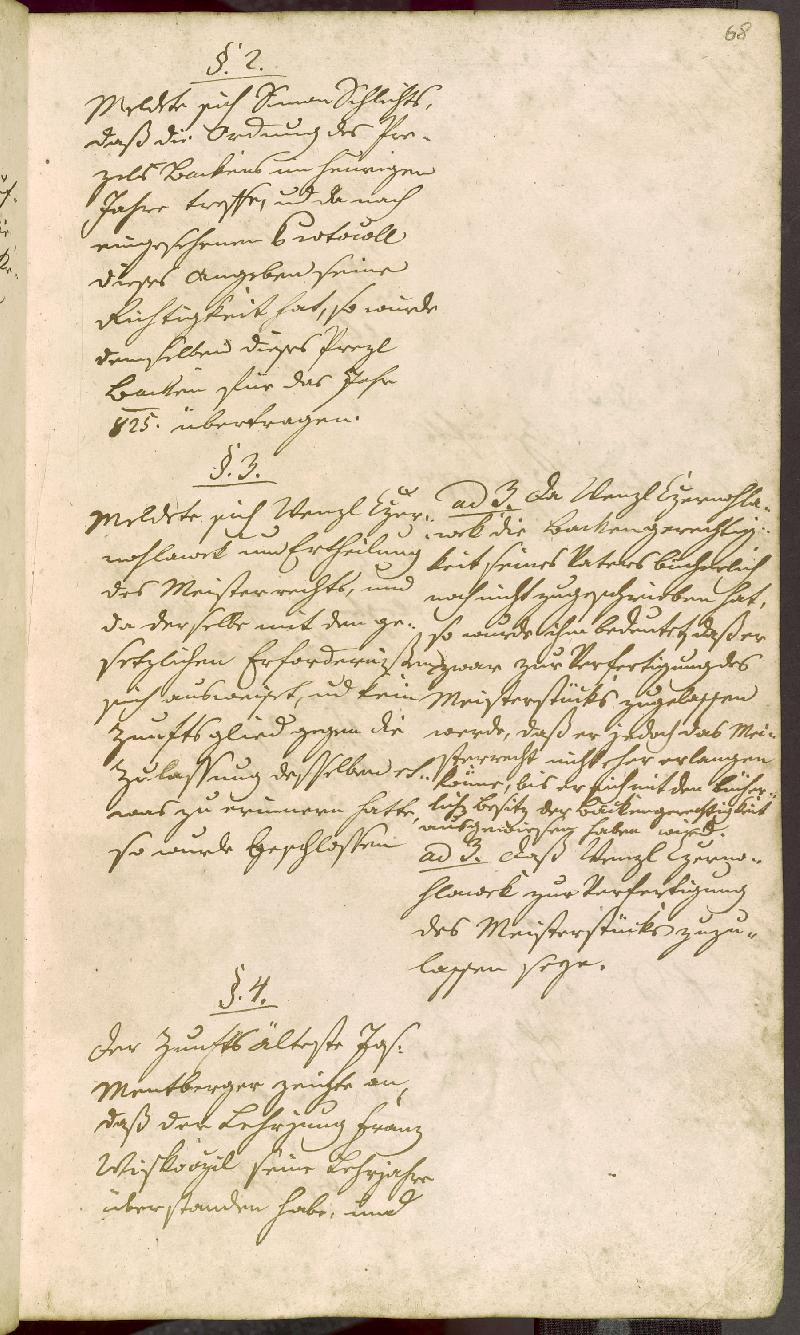 68
§. 2.
Meldete sich Simon Schlichts,
daß die Ordnung des Pre-
zels Backens im heurigen
Jahre treffe, und da nach
eingesehenen Protocoll
dieses Angeben seine
Richtigkeit hat, so wurde
demselben dieses Prezl
Backen für das Jahr
825. übertragen.
§. 3.
Meldete sich Wenzl Czer-
nohlawek um Ertheilung
des Meisterrechts, und
da derselbe mit den ge-
setzlichen Erfordernißen
sich ausweiset, und kein
Zunftsglied gegen die
Zulassung desselben et-
was zu erinnern hatte,
so wurde beschlossen
ad 3. Da Wenzl Czernohla-
wek die Backengerechtig-
keit seines Vaters bücherlich
noch nicht zugeschrieben hat,
so wurde ihm bedeutet, daß er
zwar zur Verfertigung des
Meisterstücks zugelassen
werde, daß er jedoch das Mei-
sterrecht nicht eher erlangen
könne, bis er sich mit dem bücher-
lich Besitz der Backengerechtigkeit
ausgewiesen haben wird.
ad 3. Daß Wenzl Czerno-
hlawek zur Verfertigung
des Meisterstücks zuzu-
lassen seye.
§. 4.
Der Zunfts Älteste Jos.
Mentberger zeigte an,
daß der Lehrjung Franz
Wiskoczil seine Lehrjahre
überstanden habe, und